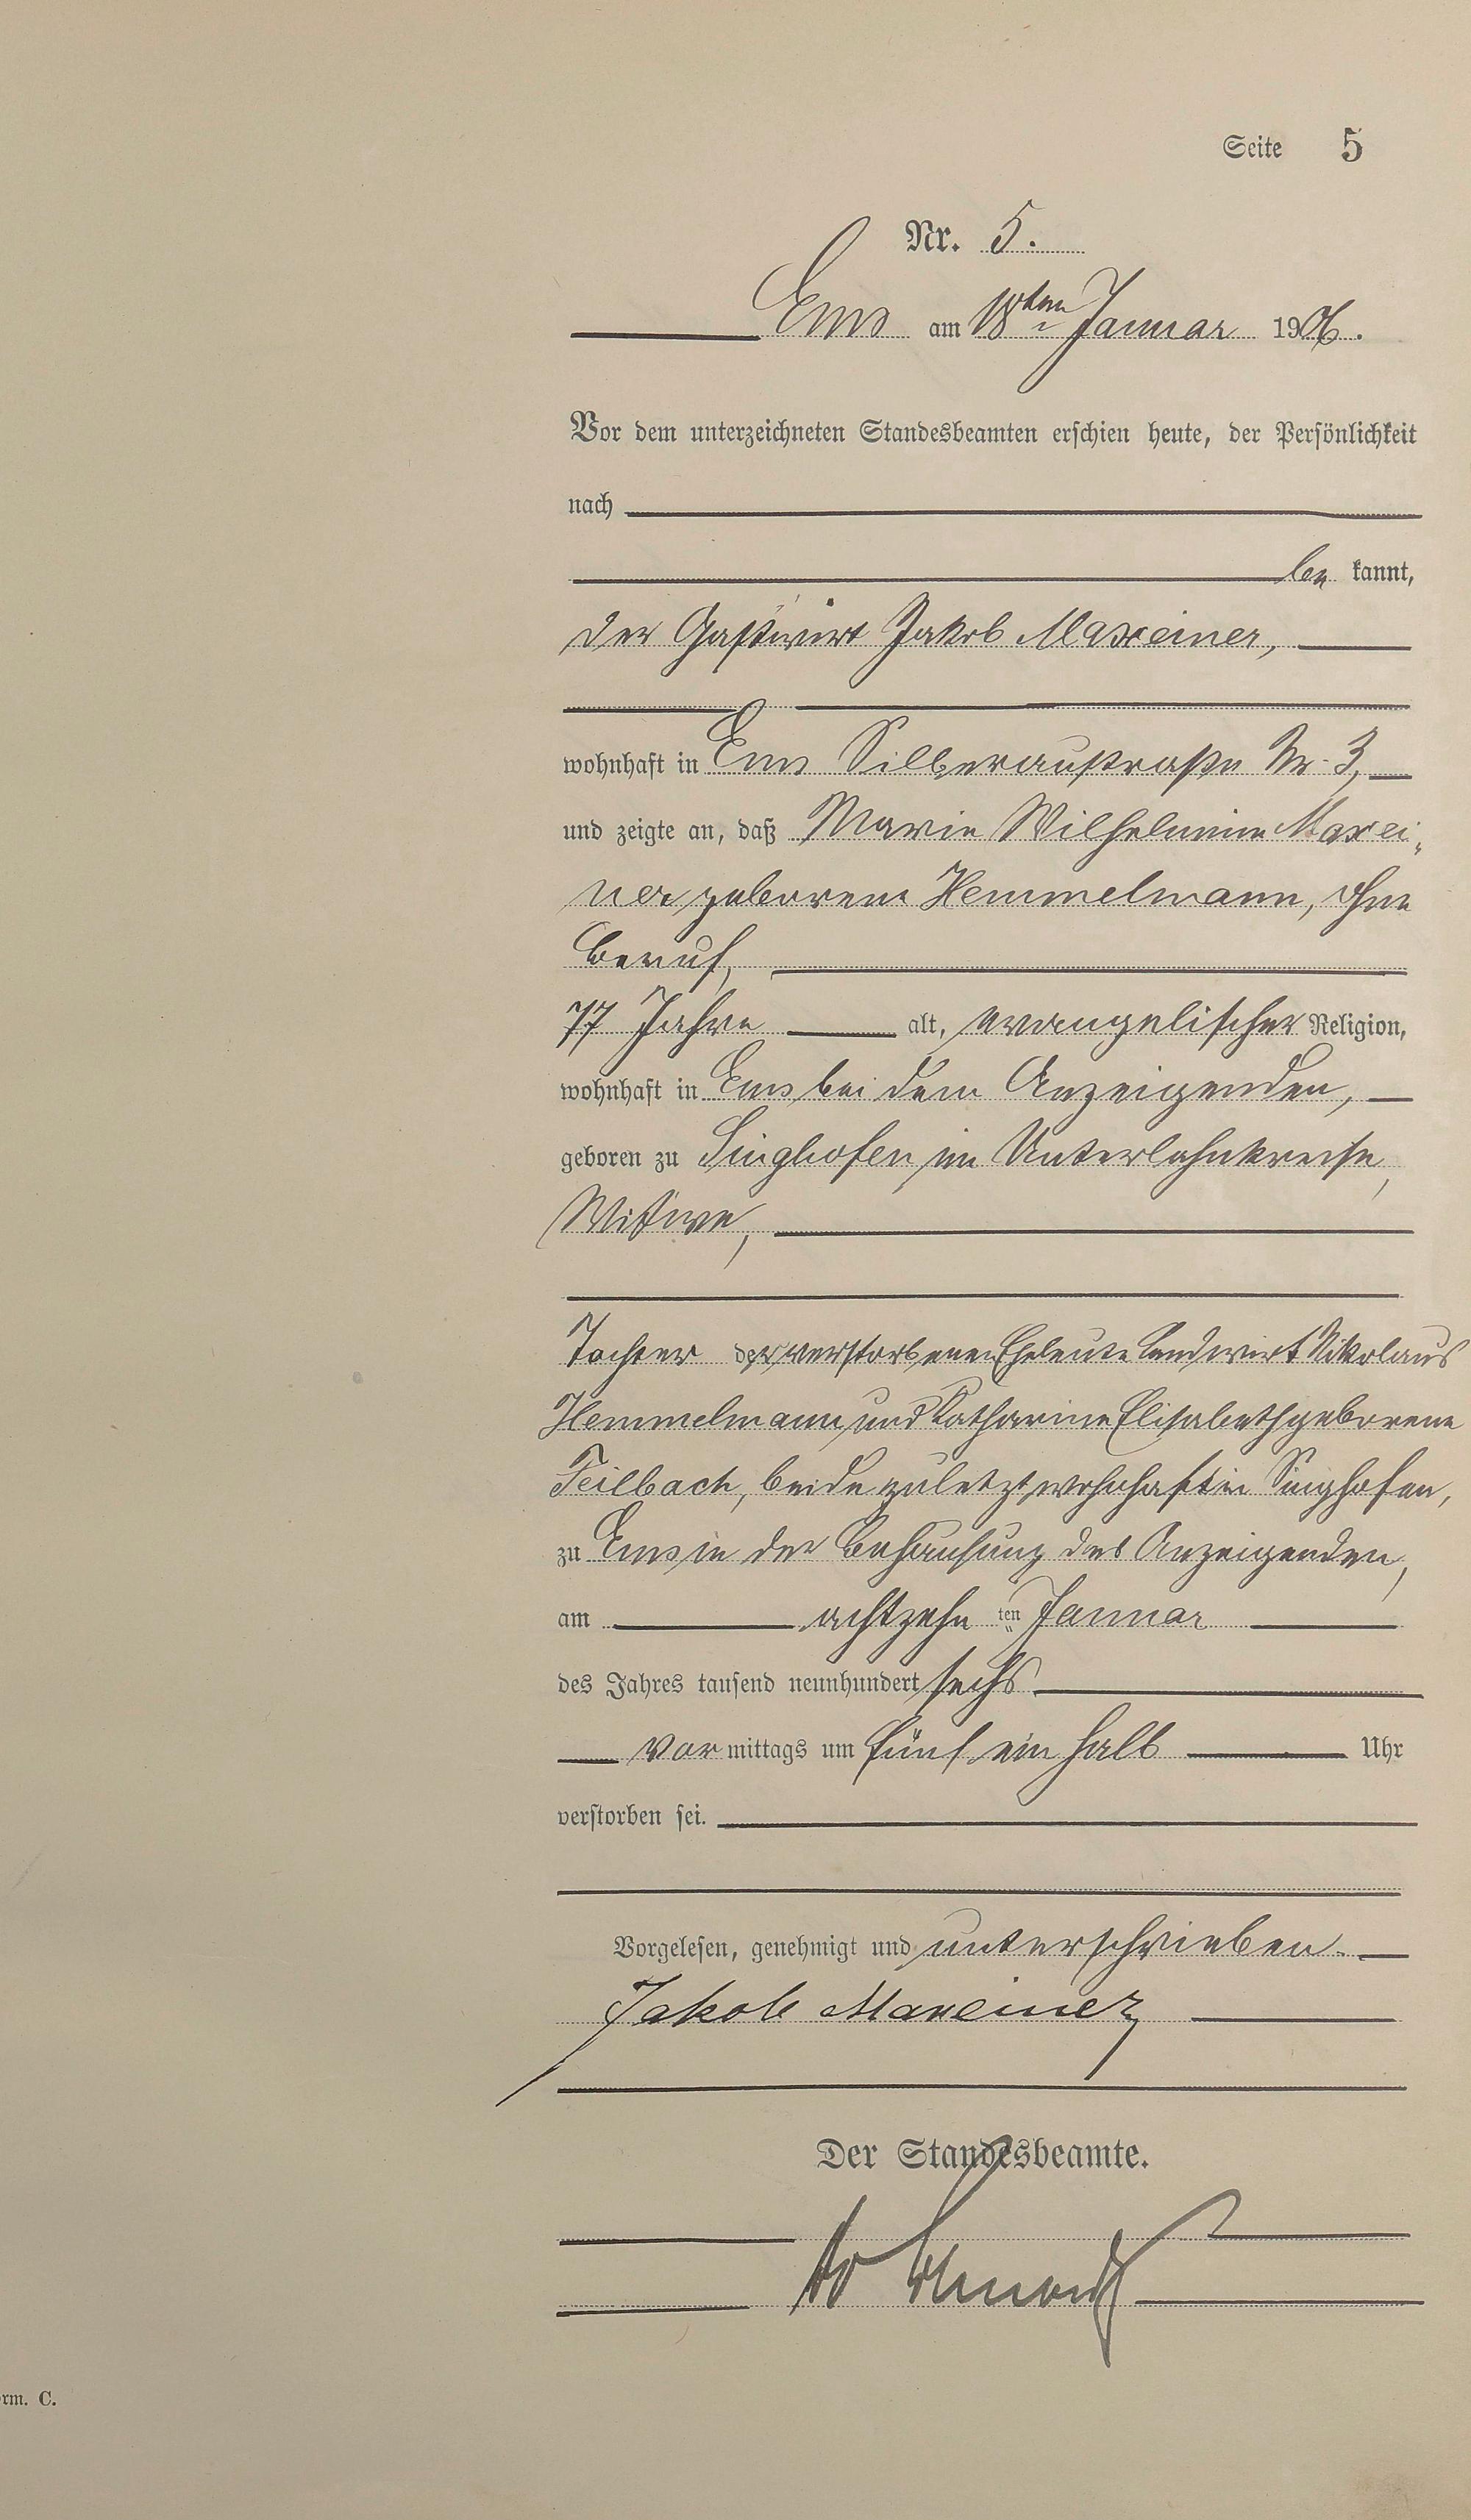 Seite 5
Nr. 5.
Ems am 18ten Januar 1906.
Vor dem unterzeichneten Standesbeamten erschien heute, der Persönlichkeit
nach
be kannt,
der Gastwirt Jakob Maxeiner,
wohnhaft in Ems Silberaustraße Nr. 3,
und zeigte an, daß Marie Wilhelmine Maxei„
ner geborene Hemmelmann, ohne
Beruf,
77 Jahre alt, evangelischer Religion,
wohnhaft in Ems bei dem Anzeigenden,
geboren zu Singhofen im Unterlahnkreise,
Witwe,
Tochter der verstorbenen Eheleute Landwirt Nikolaus
Hemmelmann und Katharine Elisabeth geborene
Teilbach, beide zuletzt wohnhaft in Singhofen,
zu Ems in der Behausung des Anzeigenden,
am achtzehn ten Januar
des Jahres tausend neunhundert sechs
vor mittags um fünf ein halb Uhr
verstorben sei.
Vorgelesen, genehmigt und unterschrieben.
Jakob Maxeiner
Der Standesbeamte.
rm. C.